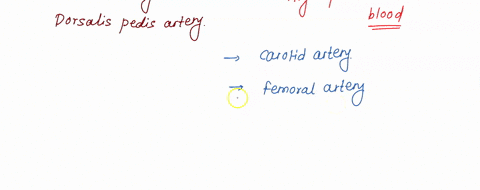 blood
Dorsalis pedis artery.
→ carotid artery.
→ femoral artery